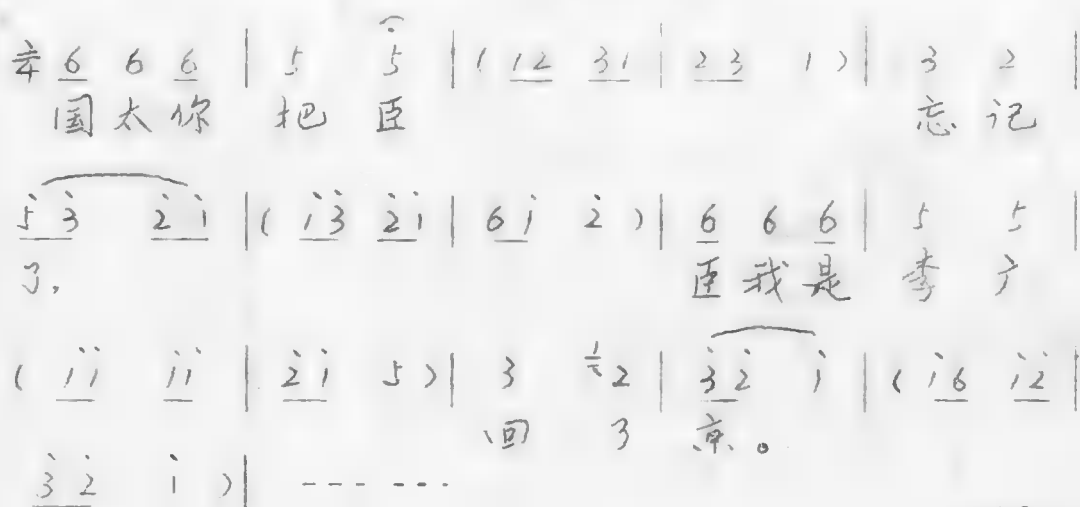 2/4 6 6 6 | 5 5 | ( 12 31 | 23 1 ) | 3 2 |
国太你 把 臣 忘 记
5̇3̇ 2̇1̇ | ( 1̇3̇ 2̇1̇ | 61̇ 2̇ ) | 6 6 6 | 5 5 |
了, 臣我是 李 广
( 1̇1̇ 1̇1̇ | 2̇1̇ 5 ) | 3 2 | 3̇2̇ 1̇ | ( 1̇6 1̇2̇ |
回 了 京。
3̇2̇ 1̇ ) | --- ---